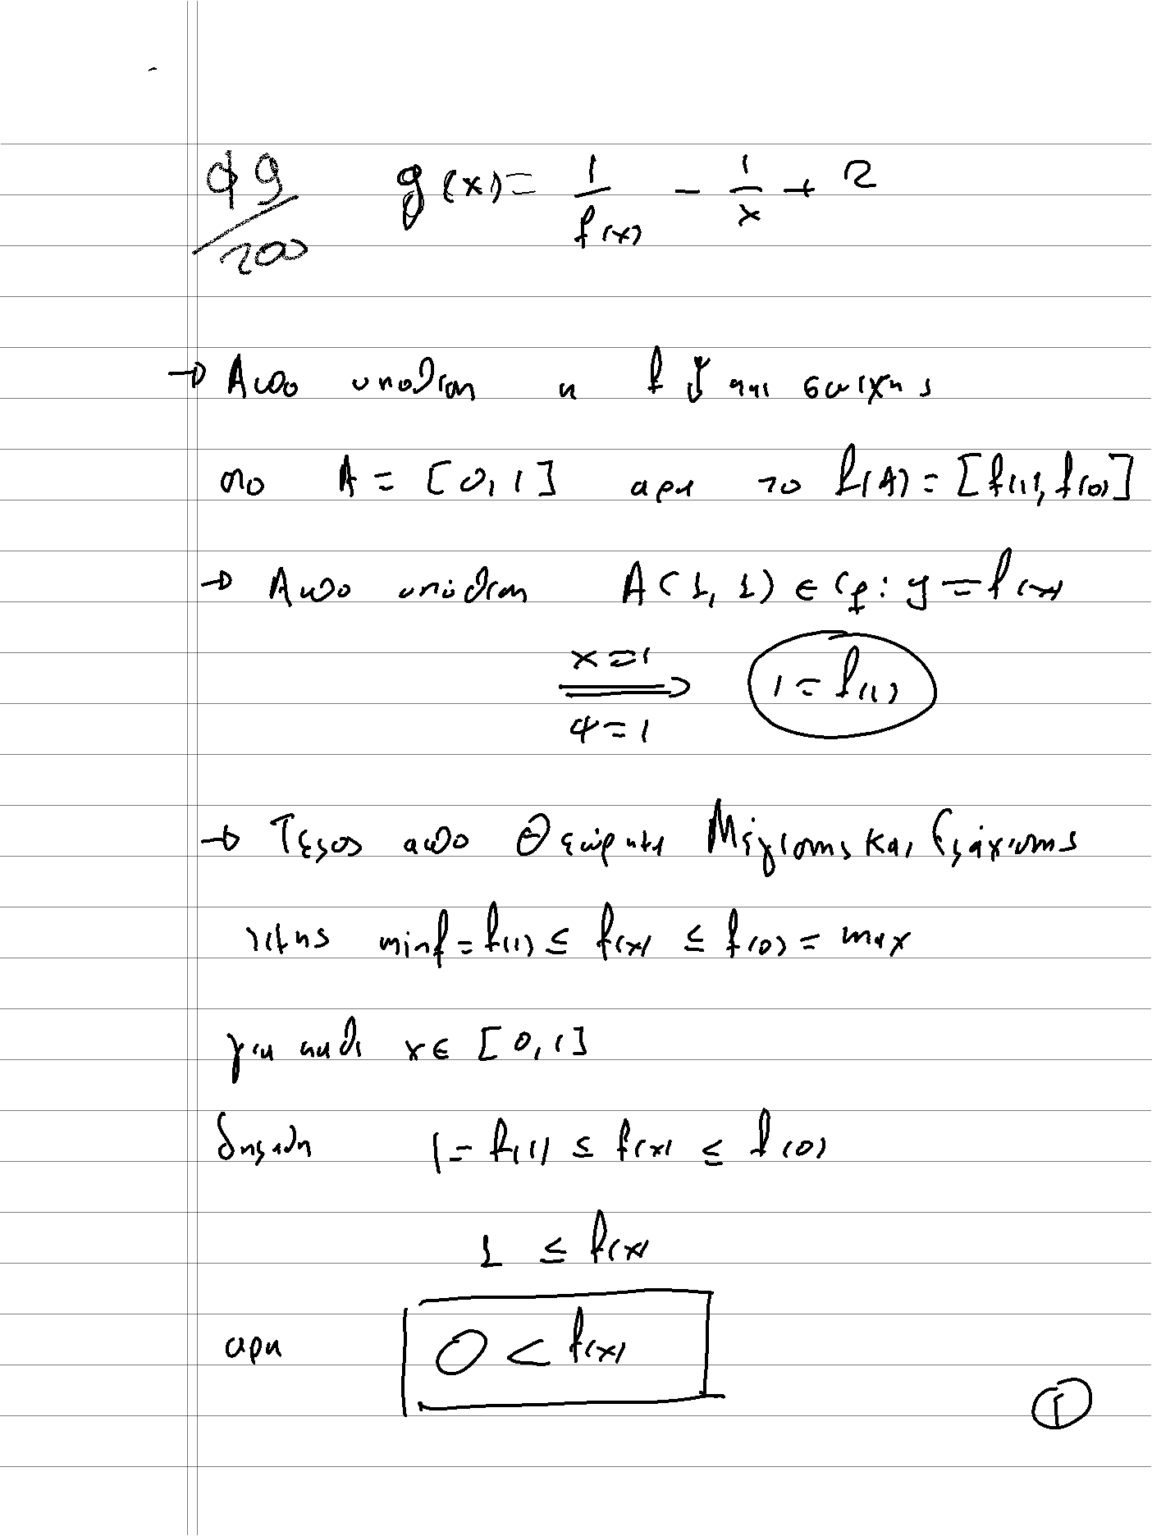 φ9/200 g(x) = 1/f(x) - 1/x + 2
→ Από υπόθεση η f ↓ και συνεχής
στο A = [0, 1] άρα το f(A) = [f(1), f(0)]
→ Από υπόθεση A(1, 1) ∈ Cf : y = f(x)
x=1
⇒ 1 = f(1)
ψ=1
→ Τέλος από Θεώρημα Μέγιστης και Ελάχιστης
τιμής minf = f(1) ≤ f(x) ≤ f(0) = max
για κάθε x ∈ [0, 1]
δηλαδή 1 = f(1) ≤ f(x) ≤ f(0)
1 ≤ f(x)
άρα 0 < f(x)
1